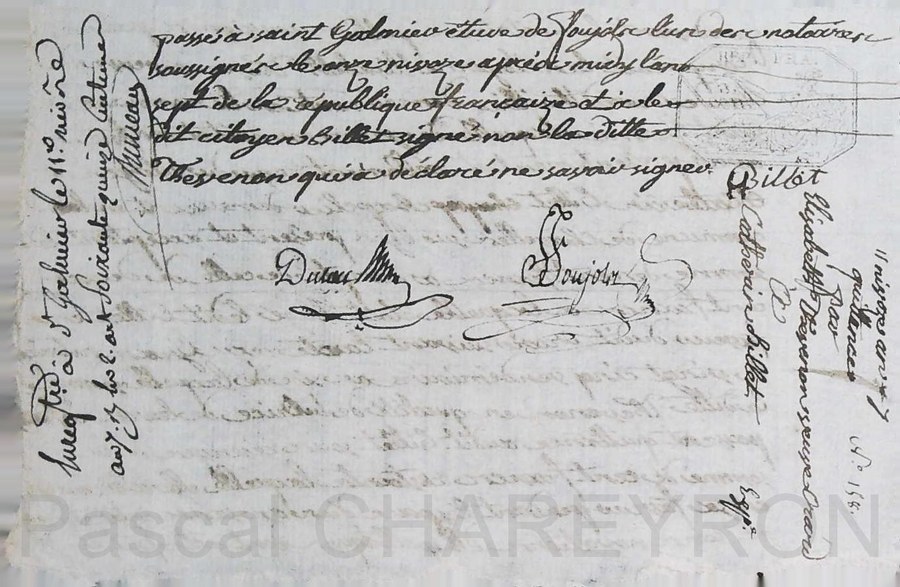 passé à saint Galmier etude de Poujols l'un des notaires
soussignés le onze nivoze après midy l'an
sept de la republique française et a le
dit citoyen Billet signé non la ditte
Thevenon qui a déclaré ne savoir signer
Billet
Poujols
Enregistré à St Galmier le 11e nivôse
an 7.
11 nivoze an 7
quittance
par
Elizabeth Thevenon veuve
à
Catherin Billet
Expe
No 158.
Pascal CHAREYRON